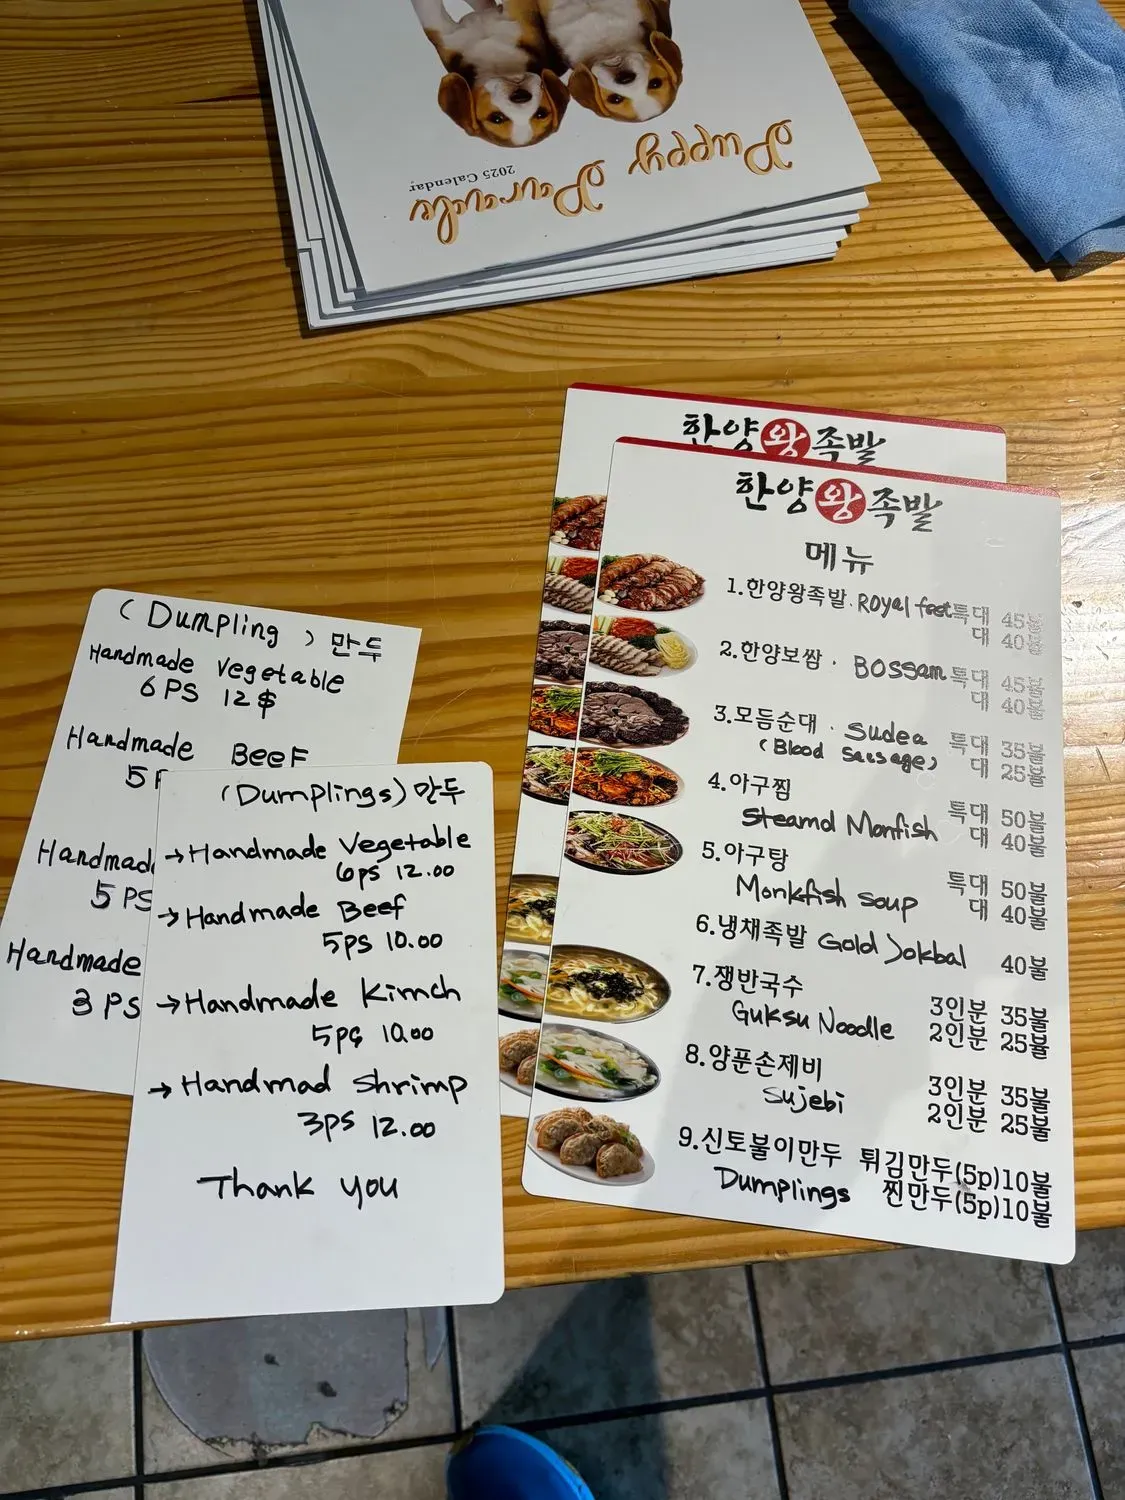 Puppy Parade
2025 Calendar
한양왕족발
한양왕족발
메뉴
1.한양왕족발. Royal feet 특대 45불
대 40불
2.한양보쌈. BOSSam 특대 45불
대 40불
3.모듬순대. Sudea 특대 35불
(Blood Sausage) 대 25불
4.아구찜 특대 50불
Steamd Monfish 대 40불
5.아구탕 특대 50불
Monkfish soup 대 40불
6.냉채족발 Gold Jokbal 40불
7.쟁반국수 3인분 35불
Guksu Noodle 2인분 25불
8.양푼손제비 3인분 35불
Sujebi 2인분 25불
9.신토불이만두 튀김만두(5p)10불
Dumplings 찐만두(5p)10불
(Dumpling) 만두
Handmade Vegetable
6 PS 12$
Handmade BeeF
5
Handmad
5 PS
Handmade
3 PS
(Dumplings) 만두
→Handmade Vegetable
6ps 12.00
→Handmade Beef
5ps 10.00
→Handmade Kimch
5ps 10.00
→Handmad Shrimp
3ps 12.00
Thank you